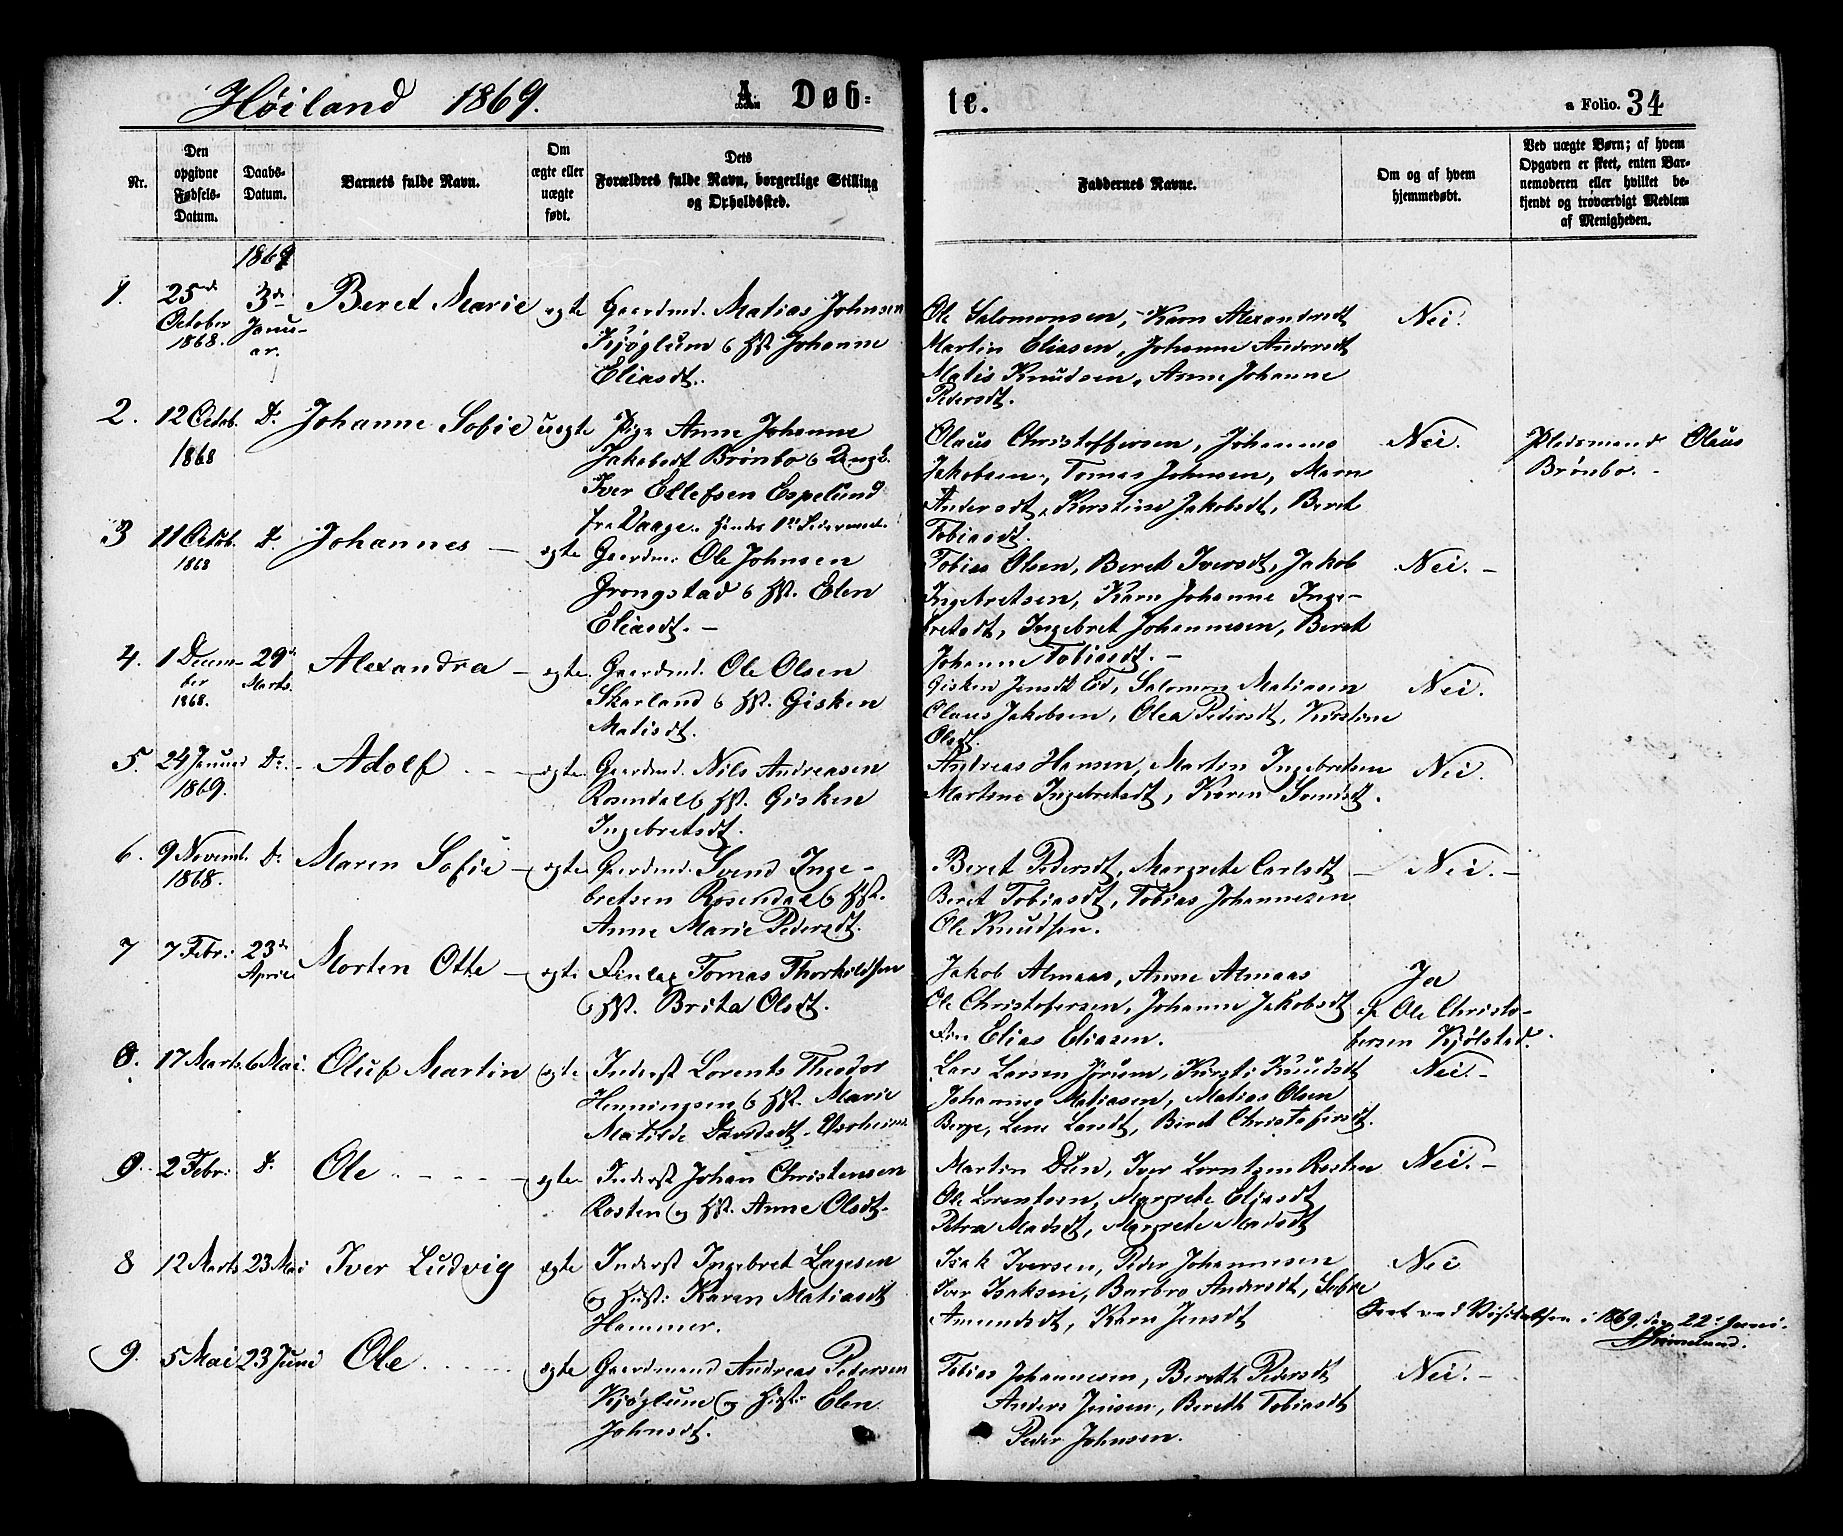 Høiland 1869. A. Døb-
te. a Folio. 34
Nr.
Den opgivne Fødsels-Datum.
Daabs-Datum.
Barnets fulde Navn.
Om ægte eller uægte født.
Dets Forældres fulde Navn, borgerlige Stilling og Opholdssted.
Faddernes Navne.
Om og af hvem hjemmedøbt.
Ved uægte Børn; af hvem Opgaven er skeet, enten Barnemoderen eller hvilket bekjendt og troværdigt Medlem af Menigheden.
1869
1. 25de October 1868. 3de Januar. Beret Marie ægte Gaardmd. Matias Johnsen
Kjøglum & Hst. Johanne
Eliasdt.
Ole Salomonsen, Karn Alexandersdt Nei.
Martin Eliasen, Johanne Andersdt
Matis Knudsen, Anne Johanne
Pedersdt.
2. 12 Octob. 1868 Do Johanne Sofie uægte Pige Anne Johanne
Jakobsdt Brønbo & Ungk.
Iver Ellefsen Espelund
fra Vaage. hendes 1ste Leiermaal.
Olaus Christoffersen, Johannes Nei. Pladsmand Olaus
Jakobsen, Tomas Johnsen, Marn Brønbo.
Andersdt, Kerstine Jakobsdt, Beret
Tobiasdt.
3 11 Octob. 1868 Do Johannes ægte Gaardm. Ole Johnsen
Grongstad & Hst. Elen
Eliasdt.
Tobias Olsen, Beret Iversdt, Jakob Nei.
Ingebretsen, Karn Johanne Inge-
bretsdt, Ingebret Johannesen, Beret
Johanne Tobiasdt.
4. 1 December 1868. 29de Marts. Alexandra ægte Gaardmd. Ole Olsen
Skarland & Hst. Gisken
Matisdt.
Gisken Jensdt Lød, Salomon Matiasen Nei.
Olaus Jakobsen, Olea Pedersdt, Kirstine
Olsdt.
5. 24 Januar 1869. Do Adolf ægte Gaardmd. Nils Andreasen
Rosendal & Hst. Gisken
Ingebretsdt.
Andreas Hansen, Martin Ingebretsen Nei.
Martine Ingebretsdt, Karen Svendsdt.
6. 9 Novemb. 1868. Do Maren Sofie ægte Gaardmd. Svend Inge-
bretsen Rosendal & Hst.
Anne Marie Pedersdt.
Beret Pedersdt, Margrete Carlsdt Nei.
Beret Tobiasdt, Tobias Johannesen
Ole Knudsen.
7 7 Febr. 23de April Morten Otte ægte Tomas Thorkildsen
& Hst. Brita Olsdt.
Jakob Almaas, Anne Almaas Ja
Ole Christofersen, Johanne Jakobsdt af Ole Christo-
Elias Eliasen. fersen Kjølstad.
8. 17 Marts 6 Mai. Oluf Martin ægte Inderst Lorents Theodor
Henningsen & Hst. Marie
Matilde Davidsdt.
Lars Larsen Jørum, Kirsti Knudsdt Nei.
Johannes Matiasen, Matias Olsen
Berge, Lene Larsdt, Beret Christofersdt.
9. 2 Febr. Do Ole ægte Inderst Johan Christensen
Rosten og Hst. Anne Olsdt.
Martin Dun, Iver Lorntzen Rosten Nei.
Ole Lorentsen, Margrete Eliasdt
Petra Madsdt, Margrete Madsdt
8 12 Marts 23 Mai Iver Ludvig ægte Inderst Ingebret Lagesen
og Hust: Karen Matiasdt
Hammer.
Isak Iversen, Peder Johannesen Nei
Iver Isaksen, Barbro Andersdt, Sofie
Amundsdt, Karn Jensdt
Seet ved Visitatsen i 1869, den 22de Juni.
9. 5 Mai 23 Juni Ole ægte Gaardmand Andreas Pedersen
Kjøglum og Hust: Elen
Johnsdt.
Tobias Johannesen, Bereth Pedersdt Nei.
Anders Jensen, Bereth Tobiasdt
Peder Johnsen.